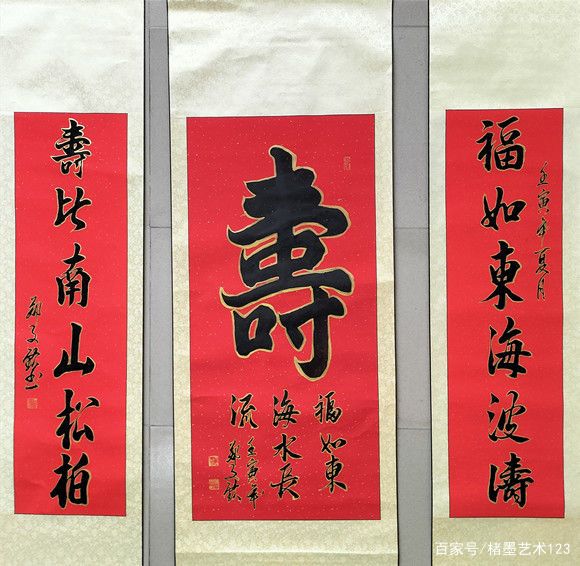 福如東海波濤
壬寅年夏月
壽
福如東
海水長
流
壬寅年
壽比南山松柏
百家号/楮墨艺术123